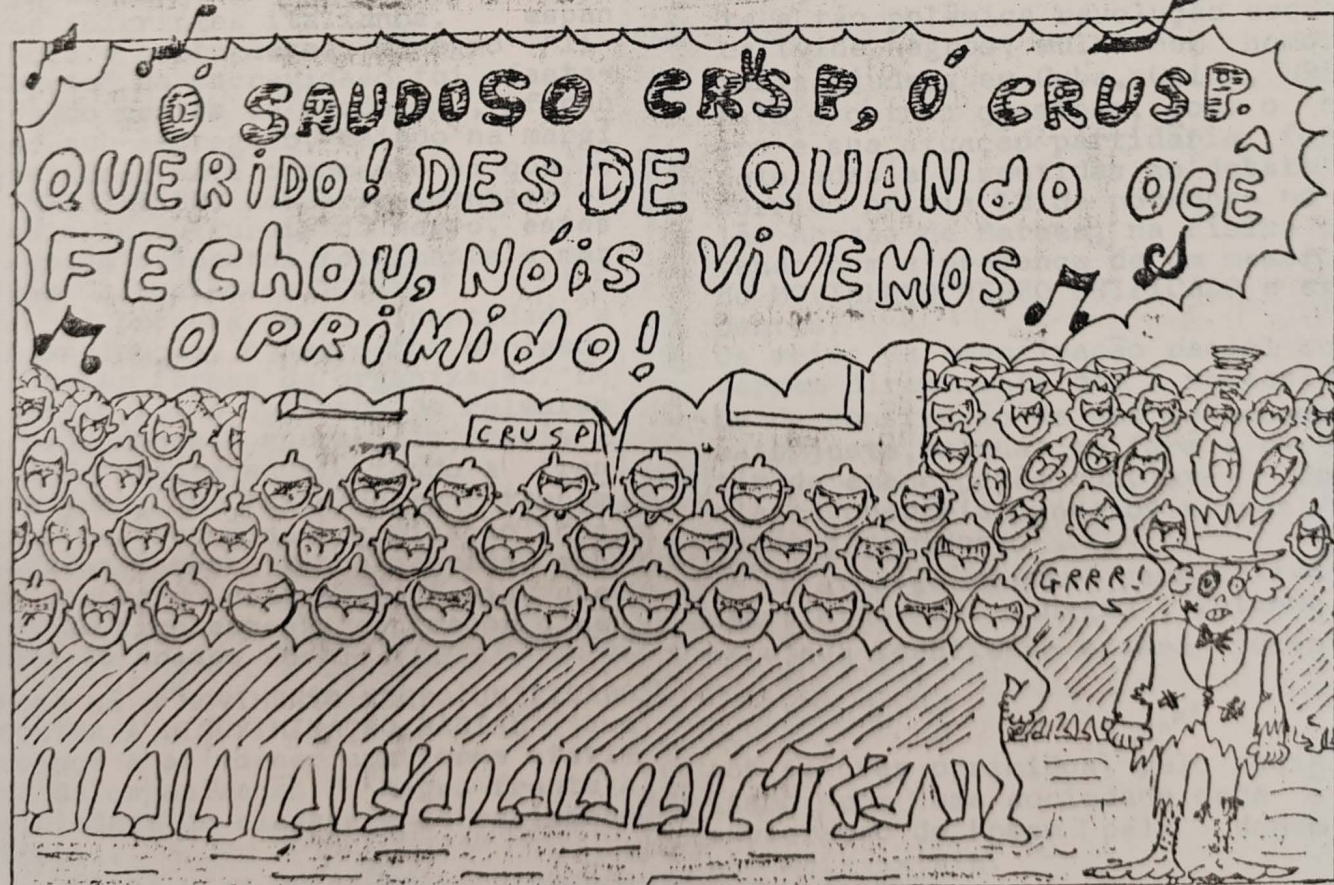 Ó SAUDOSO CRUSP, Ó CRUSP.
QUERIDO! DESDE QUANDO OCÊ
FECHOU, NÓIS VIVEMOS
OPRIMIDO!
CRUSP
GRRR!